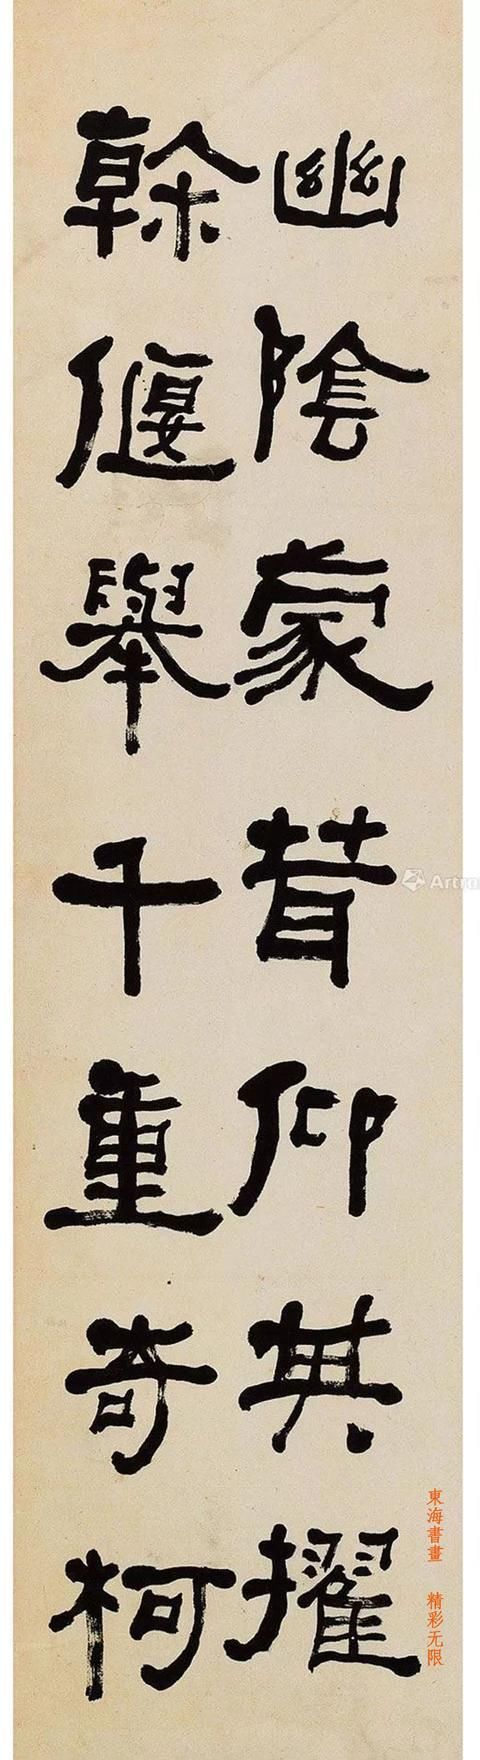 幽陰蒙茸仰其擢
榦偃舉千重奇柯
東海書畫 精彩无限